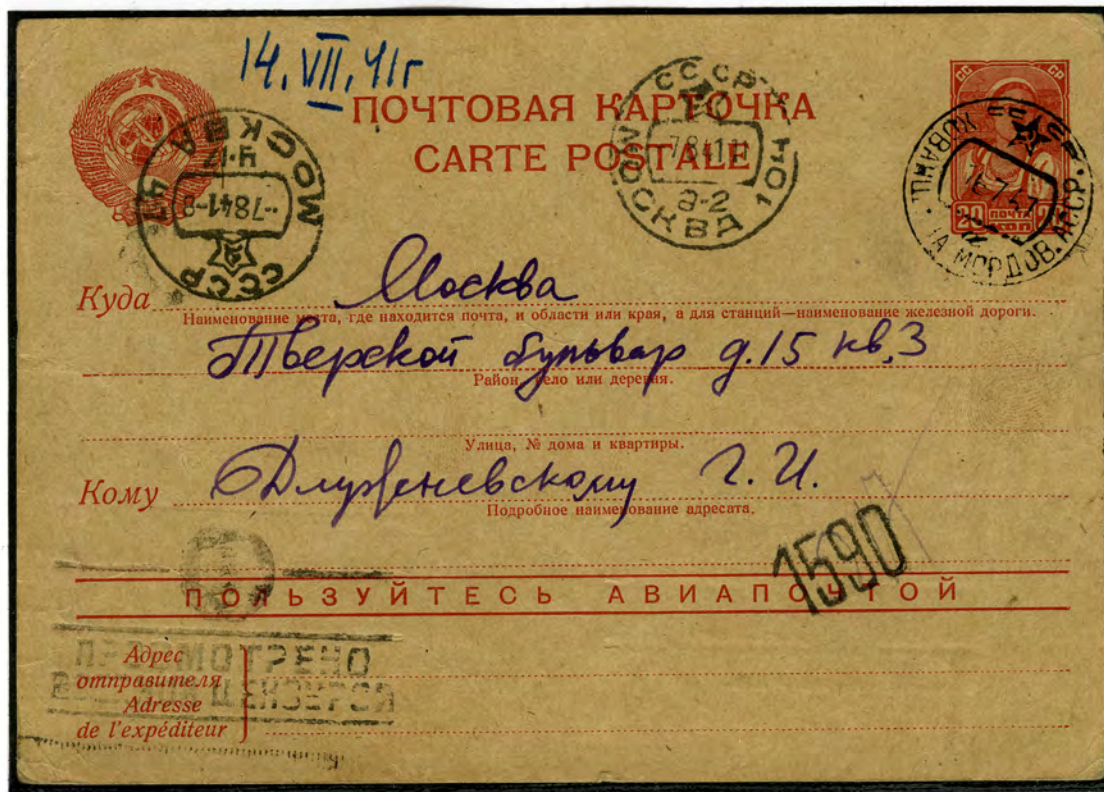 14.VII.41г
ПОЧТОВАЯ КАРТОЧКА
CARTE POSTALE
СССР
МОСКВА 104
7841
а-2
МОСКВА 47
7841-8
СССР
СС СР
МОРДОВ. АССР.
20 ПОЧТА
КОП
Куда Москва
Наименование места, где находится почта, и области или края, а для станций—наименование железной дороги.
Тверской бульвар д.15 кв.3
Район, село или деревня.
Улица, № дома и квартиры.
Кому Длуженевскому Г. И.
Подробное наименование адресата.
1590
ПОЛЬЗУЙТЕСЬ АВИАПОЧТОЙ
ПРОСМОТРЕНО
ЦЕНЗУРОЙ
Адрес
отправителя
Adresse
de l'expéditeur